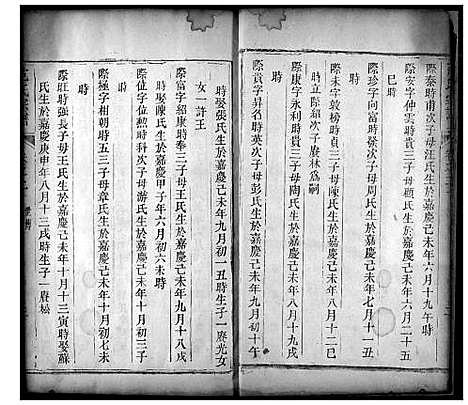 際泰時甫次子母汪氏生於嘉慶己未年六月十九午時
際安字仲雲時貴三子母顧氏生於嘉慶己未年六月二十五
巳時
際珍字向富時貴次子母周氏生於嘉慶己未年七月十一丑
際未字敦榜時貞三子母陳氏生於嘉慶己未年八月十二巳
時立際猫次子賡林爲嗣
際康字永利時貴三子母陶氏生於嘉慶己未年八月十七戌
際貴字昇名時英次子母彭氏生於嘉慶己未年九月初十午
時娶張氏生於嘉慶己未年九月初一丑時生子一賡光女
女一許王
際富字紹康時奉三子母王氏生於嘉慶己未年九月十八戌
時娶陳氏生於嘉慶甲子年六月初六未時
際位字位勲時科次子母游氏生於嘉慶己未年十月初三子
時
際極字相朝時五三子母章氏生於嘉慶己未年十月初七未
時
際旺時強長子母王氏生於嘉慶己未年十月十三寅時娶蘇
氏生於嘉慶庚申年八月十三戌時生子一賡松